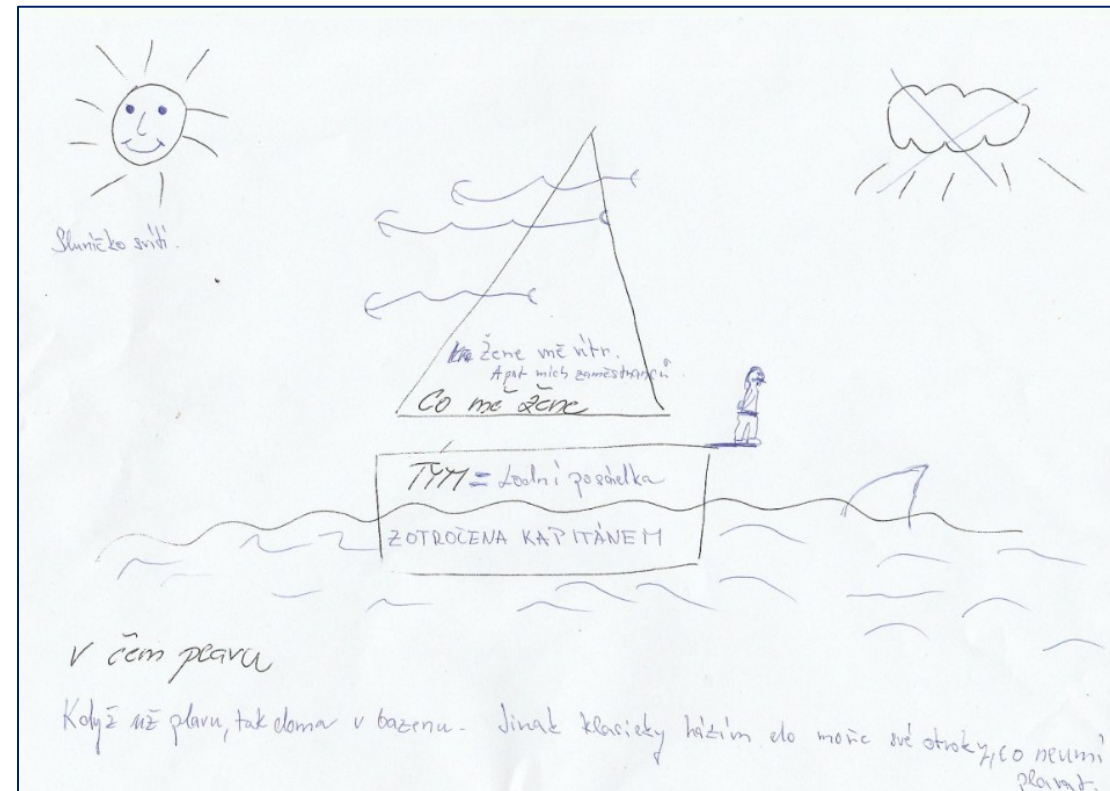 Sluníčko svítí.
Žene mě vítr.
A pot mích zaměstnanců.
Co mě žene
TÝM = Lodní posádka
ZOTROČENA KAPITÁNEM
V čem plavu
Když už plavu, tak doma v bazenu. Jinak klasicky házím do moře své otroky, co neumí
plavat.